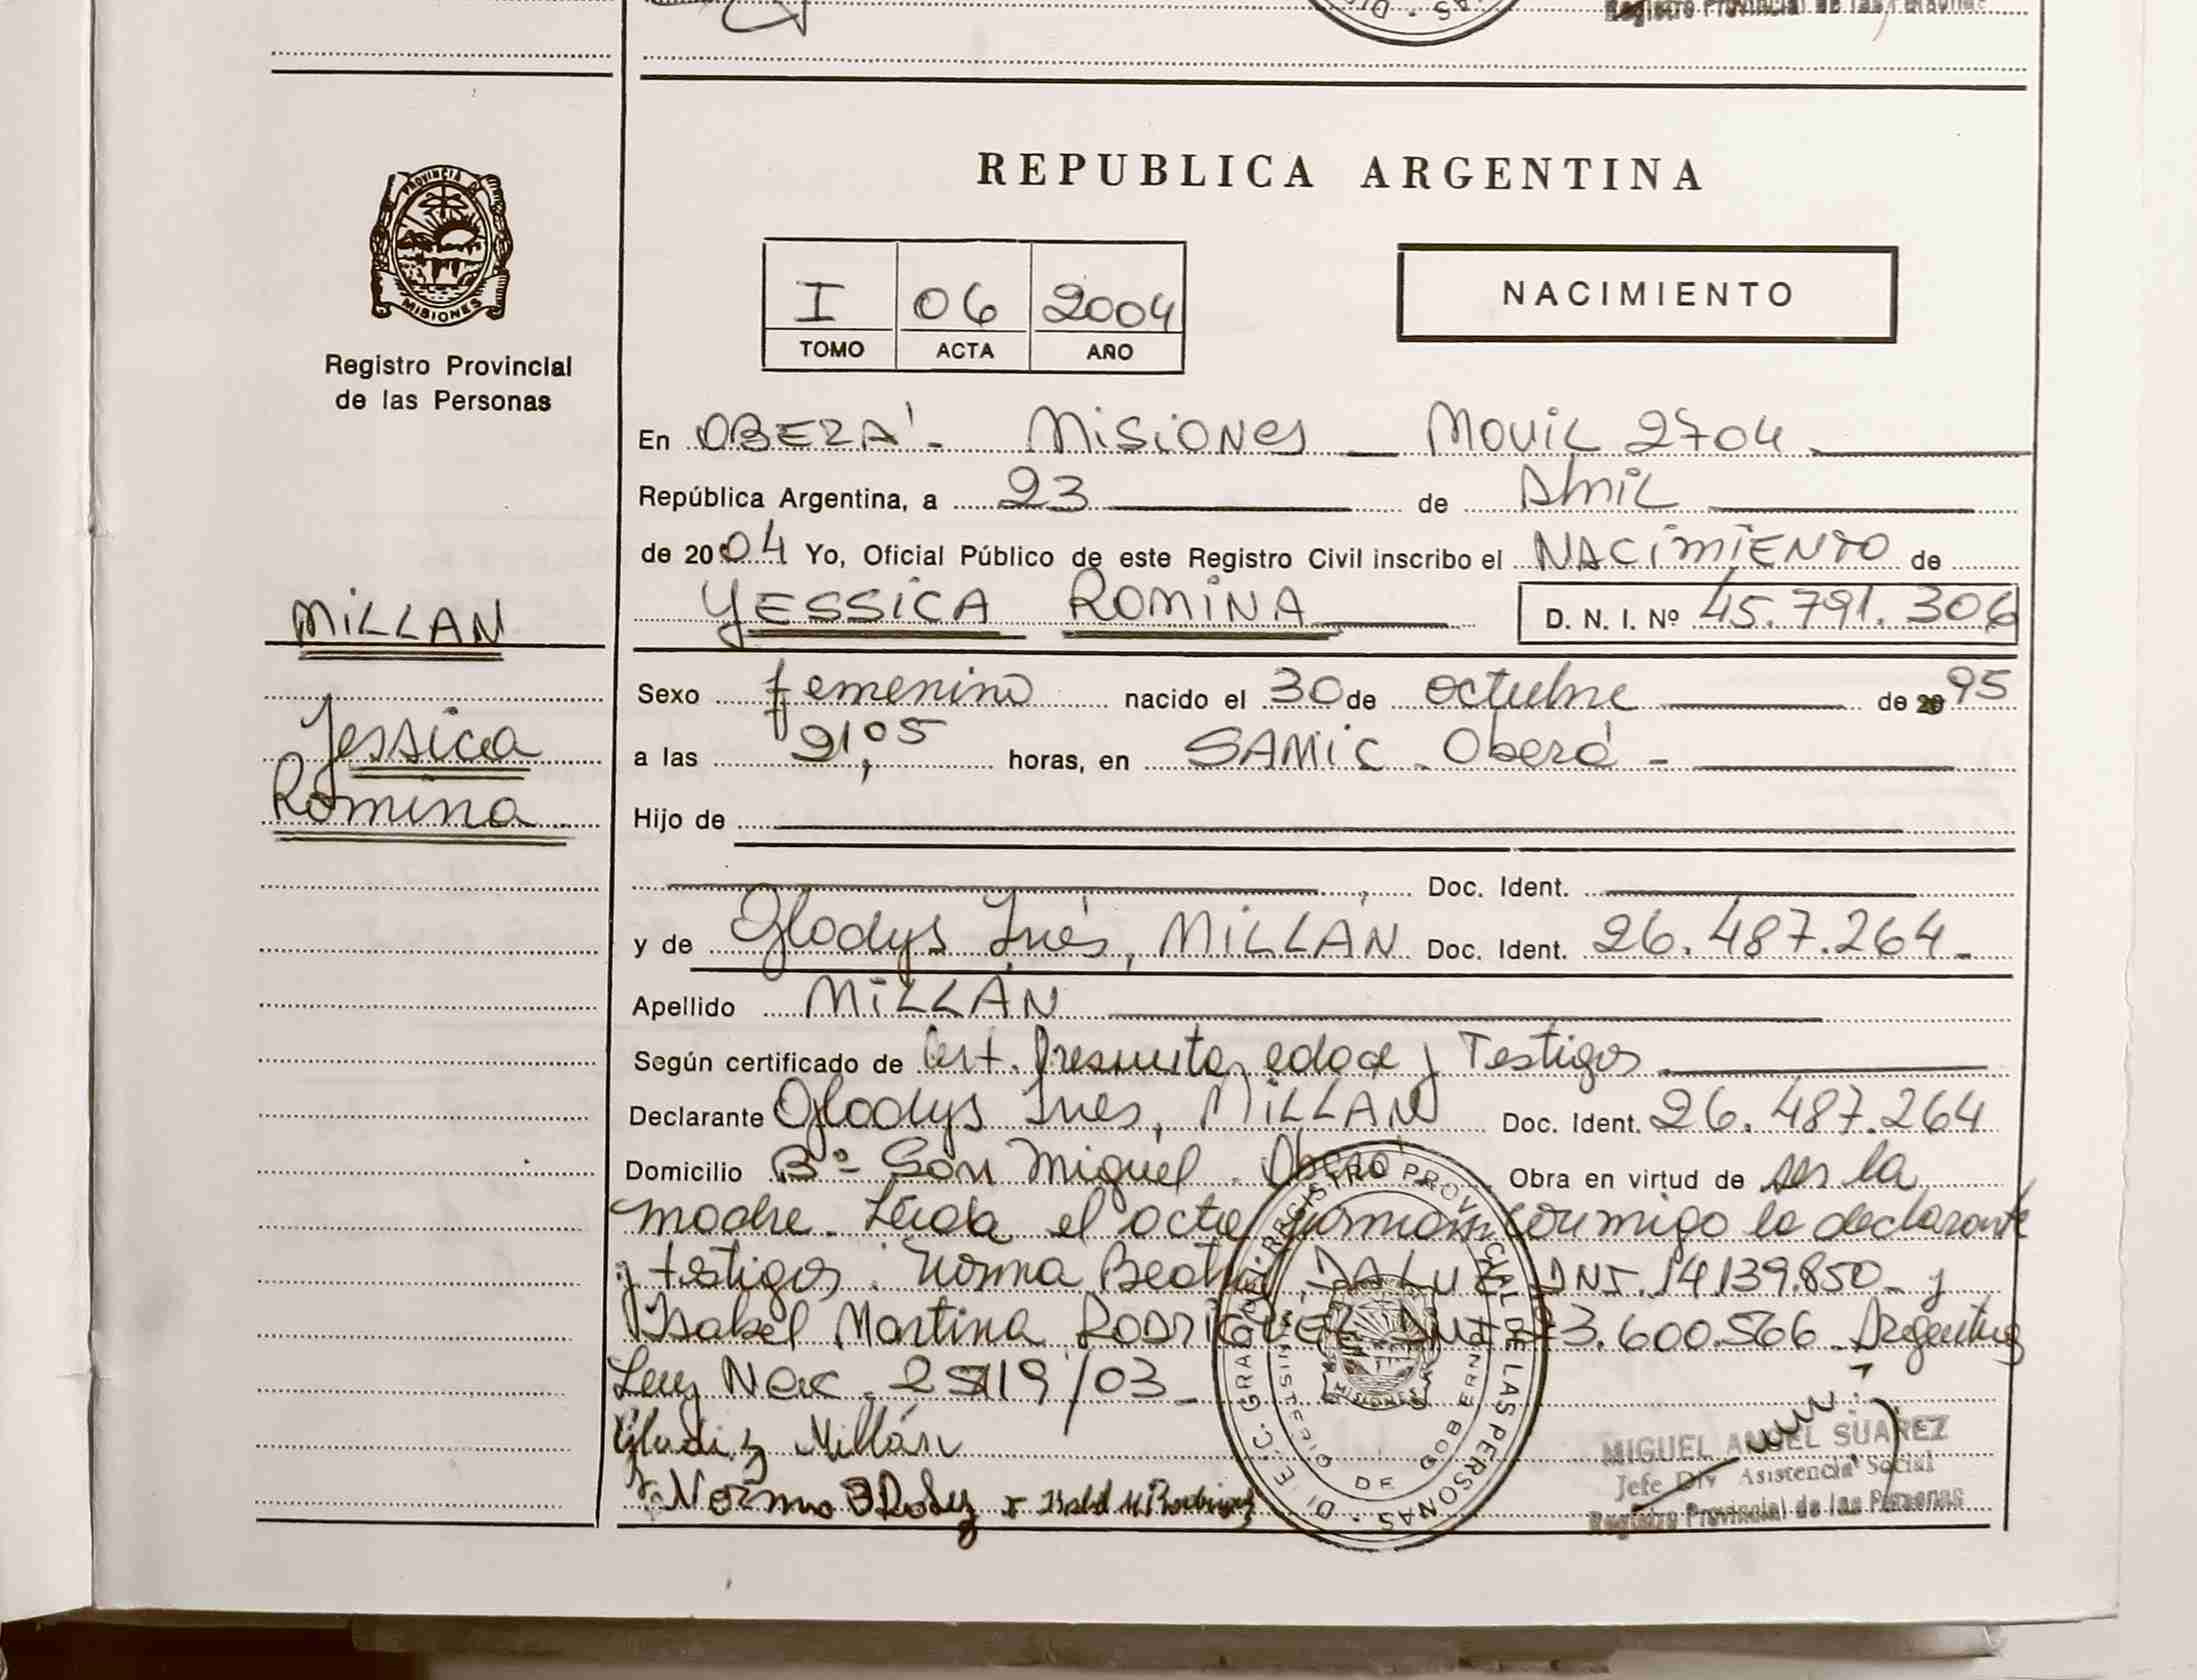 Registro Provincial de las Personas
REPUBLICA ARGENTINA
PROVINCIA DE
MISIONES
Registro Provincial
de las Personas
I 06 2004
TOMO ACTA AÑO
NACIMIENTO
En OBERA'- Misiones Movil 2704
República Argentina, a 23 de Abril
de 2004 Yo, Oficial Público de este Registro Civil inscribo el NACIMIENTO de
YESSICA ROMINA D. N. I. Nº 45.791.306
MILLAN
Yessica
Romina
Sexo femenino nacido el 30 de octubre de 95
a las 21,05 horas, en SAMIC - Oberá -
Hijo de
Doc. Ident.
y de Gladys Inés, MILLAN Doc. Ident. 26.487.264
Apellido MILLAN
Según certificado de Cert. Presunta edad y Testigos
Declarante Gladys Ines, MILLAN Doc. Ident. 26.487.264
Domicilio Bº San Miguel - Oberá Obra en virtud de ser la
madre. Leida el acta firman conmigo la declarante
y testigos: Norma Beatriz DA LUZ DNI. 14.139.850 y
Isabel Martina RODRIGUEZ DNI 3.600.566 - Argentinas
Ley Nac. 25819/03
Gladiz Millán
Norma
REGISTRO PROVINCIAL DE LAS PERSONAS
MISIONES
MIGUEL ANGEL SUAREZ
Jefe Div Asistencia Social
Registro Provincial de las Personas